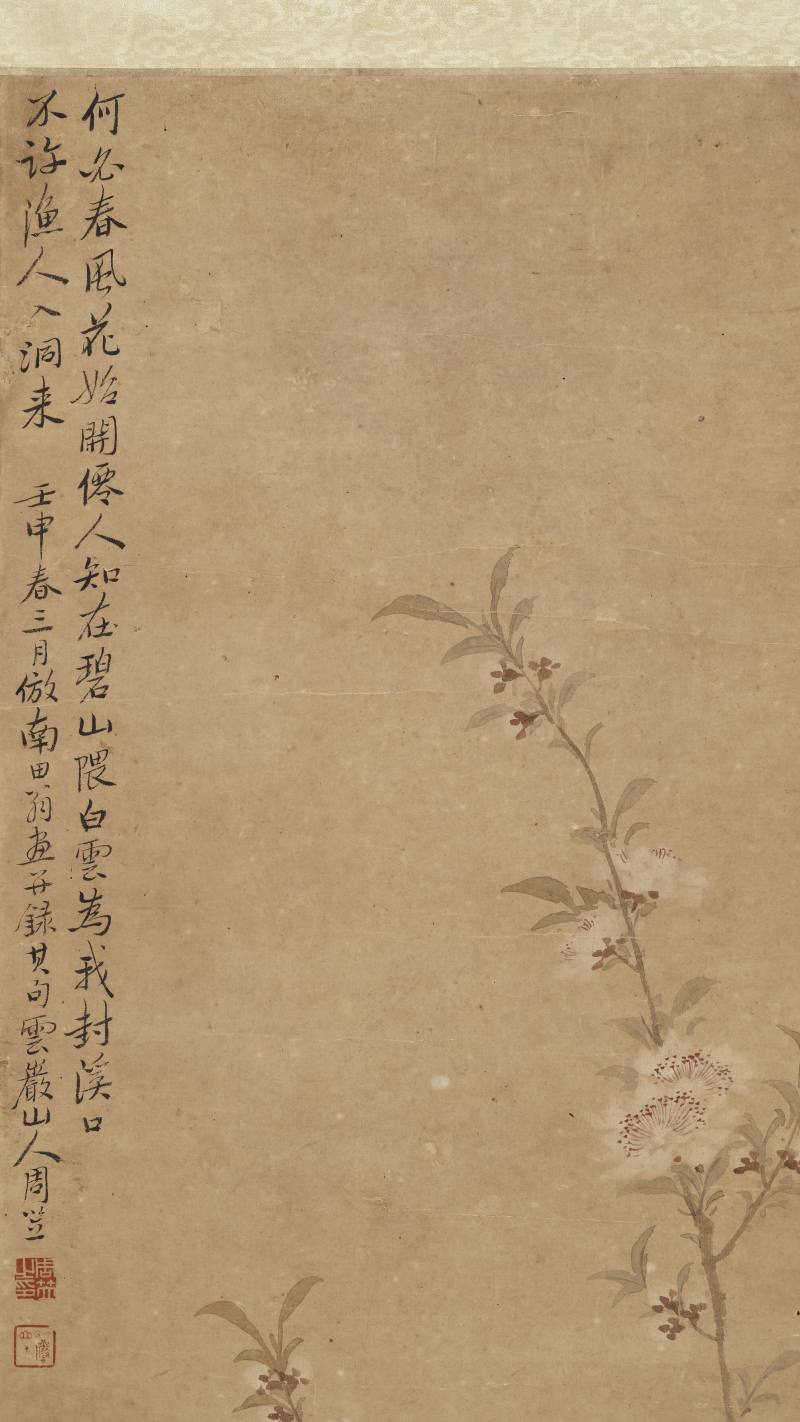 何必春風花始開僊人知在碧山隈白雲為我封溪口
不許漁人入洞来 壬申春三月倣南田翁画并録其句雲巖山人周笠